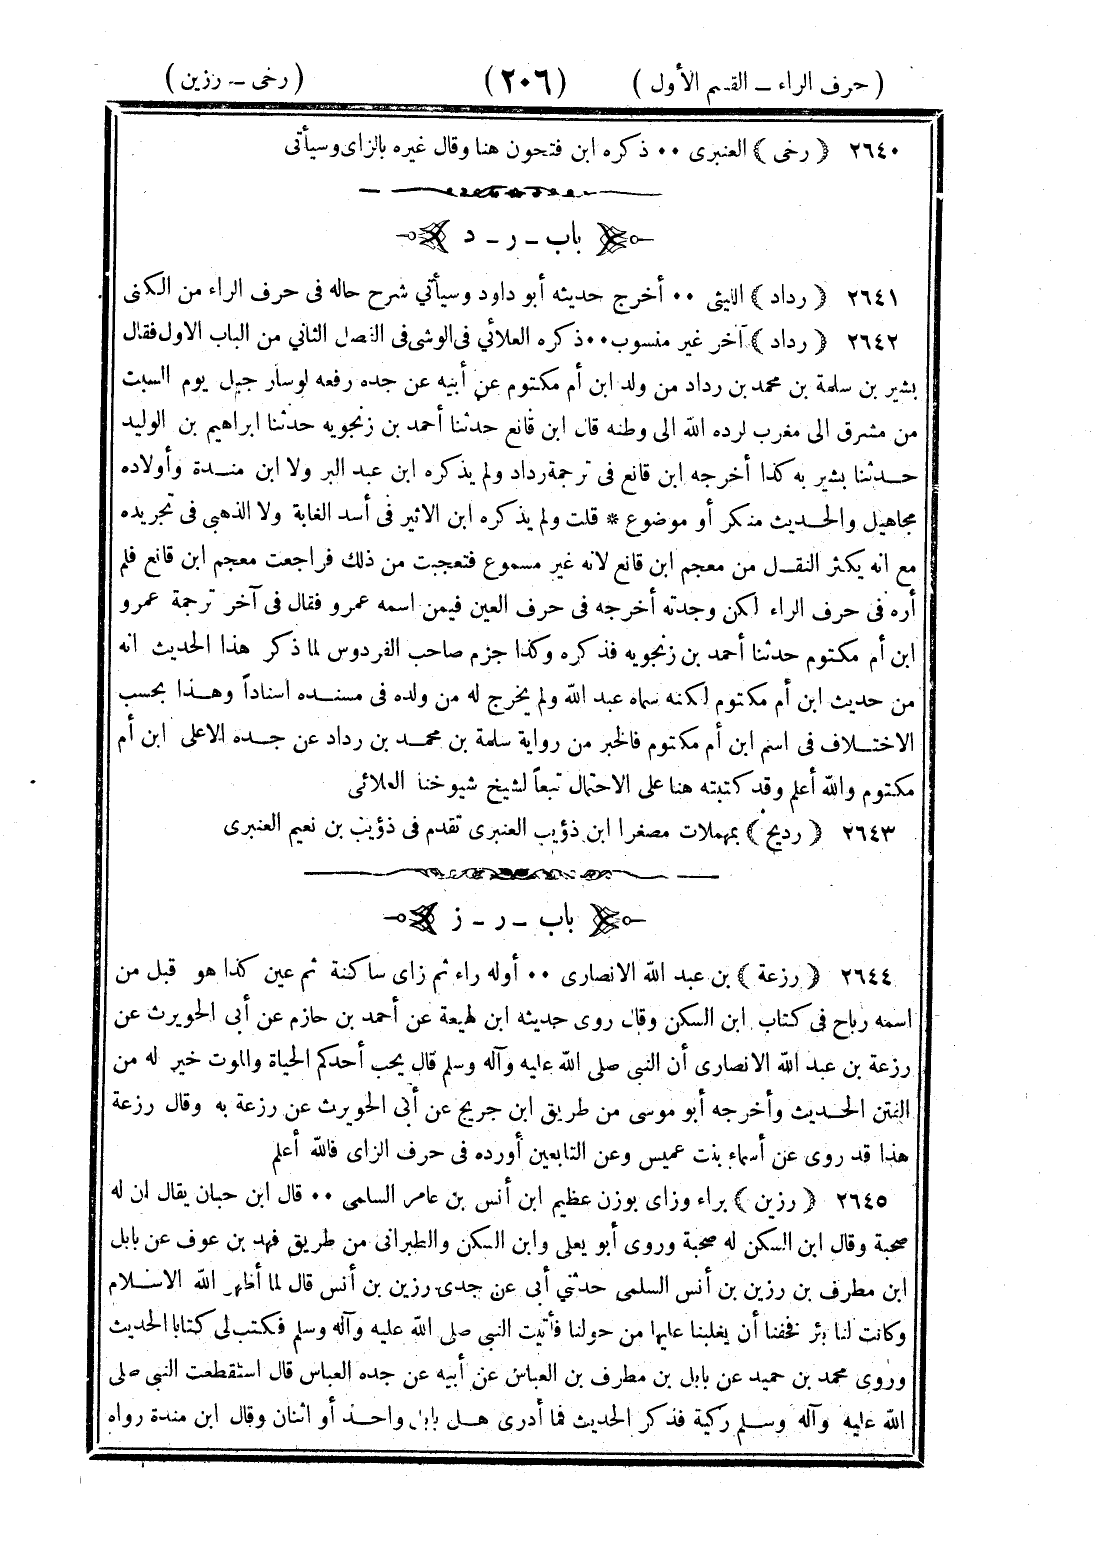 ( حرف الراء ـ القسم الأول ) (٢٠٦) ( رخى ـ رزين )
٢٦٤٠ ( رخى ) العنبرى ٠٠ ذكره ابن فتحون هنا وقال غيره بالزاى وسيأتى
باب ـ ر ـ د
٢٦٤١ ( رداد ) الليثى ٠٠ أخرج حديثه أبو داود وسيأتي شرح حاله فى حرف الراء من الكنى
٢٦٤٢ ( رداد ) آخر غير منسوب ٠٠ ذكره العلائي فى الوشى فى الفصل الثاني من الباب الاول فقال
بشير بن سلمة بن محمد بن رداد من ولد ابن أم مكتوم عن أبيه عن جده رفعه لوسار جبل يوم السبت
من مشرق الى مغرب لرده الله الى وطنه قال ابن قانع حدثنا أحمد بن زنجويه حدثنا ابراهيم بن الوليد
حدثنا بشير به كذا أخرجه ابن قانع فى ترجمة رداد ولم يذكره ابن عبد البر ولا ابن مندة وأولاده
مجاهيل والحديث منكر أو موضوع * قلت ولم يذكره ابن الاثير فى أسد الغابة ولا الذهبى فى تجريده
مع انه يكثر النقل من معجم ابن قانع لانه غير مسموع فتعجبت من ذلك فراجعت معجم ابن قانع فلم
أره فى حرف الراء لكن وجدته أخرجه فى حرف العين فيمن اسمه عمرو فقال فى آخر ترجمة عمرو
ابن أم مكتوم حدثنا أحمد بن زنجويه فذكره وكذا جزم صاحب الفردوس لما ذكر هذا الحديث انه
من حديث ابن أم مكتوم لكنه سماه عبد الله ولم يخرج له من ولده فى مسنده اسناداً وهذا بحسب
الاختلاف فى اسم ابن أم مكتوم فالخبر من رواية سلمة بن محمد بن رداد عن جده الاعلى ابن أم
مكتوم والله أعلم وقد كتبته هنا على الاحتمال تبعاً لشيخ شيوخنا العلائى
٢٦٤٣ ( رديح ) بمهملات مصغرا ابن ذؤيب العنبرى تقدم فى ذؤيب بن نعيم العنبرى
باب ـ ر ـ ز
٢٦٤٤ ( رزعة ) بن عبد الله الانصارى ٠٠ أوله راء ثم زاى ساكنة ثم عين كذا هو قبل من
اسمه رباح فى كتاب ابن السكن وقال روى حديثه ابن لهيعة عن أحمد بن حازم عن أبى الحويرث عن
رزعة بن عبد الله الانصارى أن النبى صلى الله عليه وآله وسلم قال يحب أحدكم الحياة والموت خير له من
الفتن الحديث وأخرجه أبو موسى من طريق ابن جريج عن أبى الحويرث عن رزعة به وقال رزعة
هذا قد روى عن أسماء بنت عميس وعن التابعين أورده فى حرف الزاى فالله أعلم
٢٦٤٥ ( رزين ) براء وزاى بوزن عظيم ابن أنس بن عامر السلمى ٠٠ قال ابن حبان يقال ان له
صحبة وقال ابن السكن له صحبة وروى أبو يعلى وابن السكن والطبرانى من طريق فهد بن عوف عن بابل
ابن مطرف بن رزين بن أنس السلمى حدثني أبى عن جدى رزين بن أنس قال لما أظهر الله الاسلام
وكانت لنا بئر فخفنا أن يغلبنا عليها من حولنا فأتيت النبى صلى الله عليه وآله وسلم فكتب لى كتابا الحديث
وروى محمد بن حميد عن بابل بن مطرف بن العباس عن أبيه عن جده العباس قال استقطعت النبى صلى
الله عليه وآله وسلم ركية فذكر الحديث فما أدرى هل بابل واحد أو اثنان وقال ابن مندة رواه